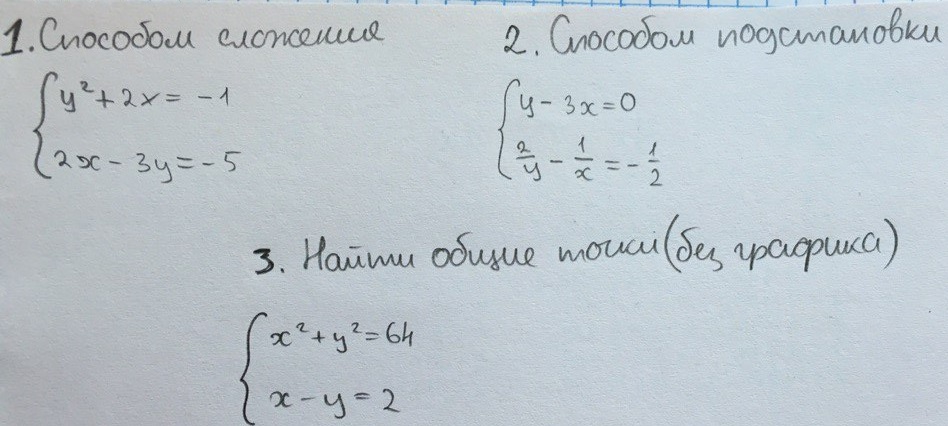 1. Способом сложения
{ y² + 2x = -1
2x - 3y = -5
2. Способом подстановки
{ y - 3x = 0
2/y - 1/x = -1/2
3. Найти общие точки (без графика)
{ x² + y² = 64
x - y = 2